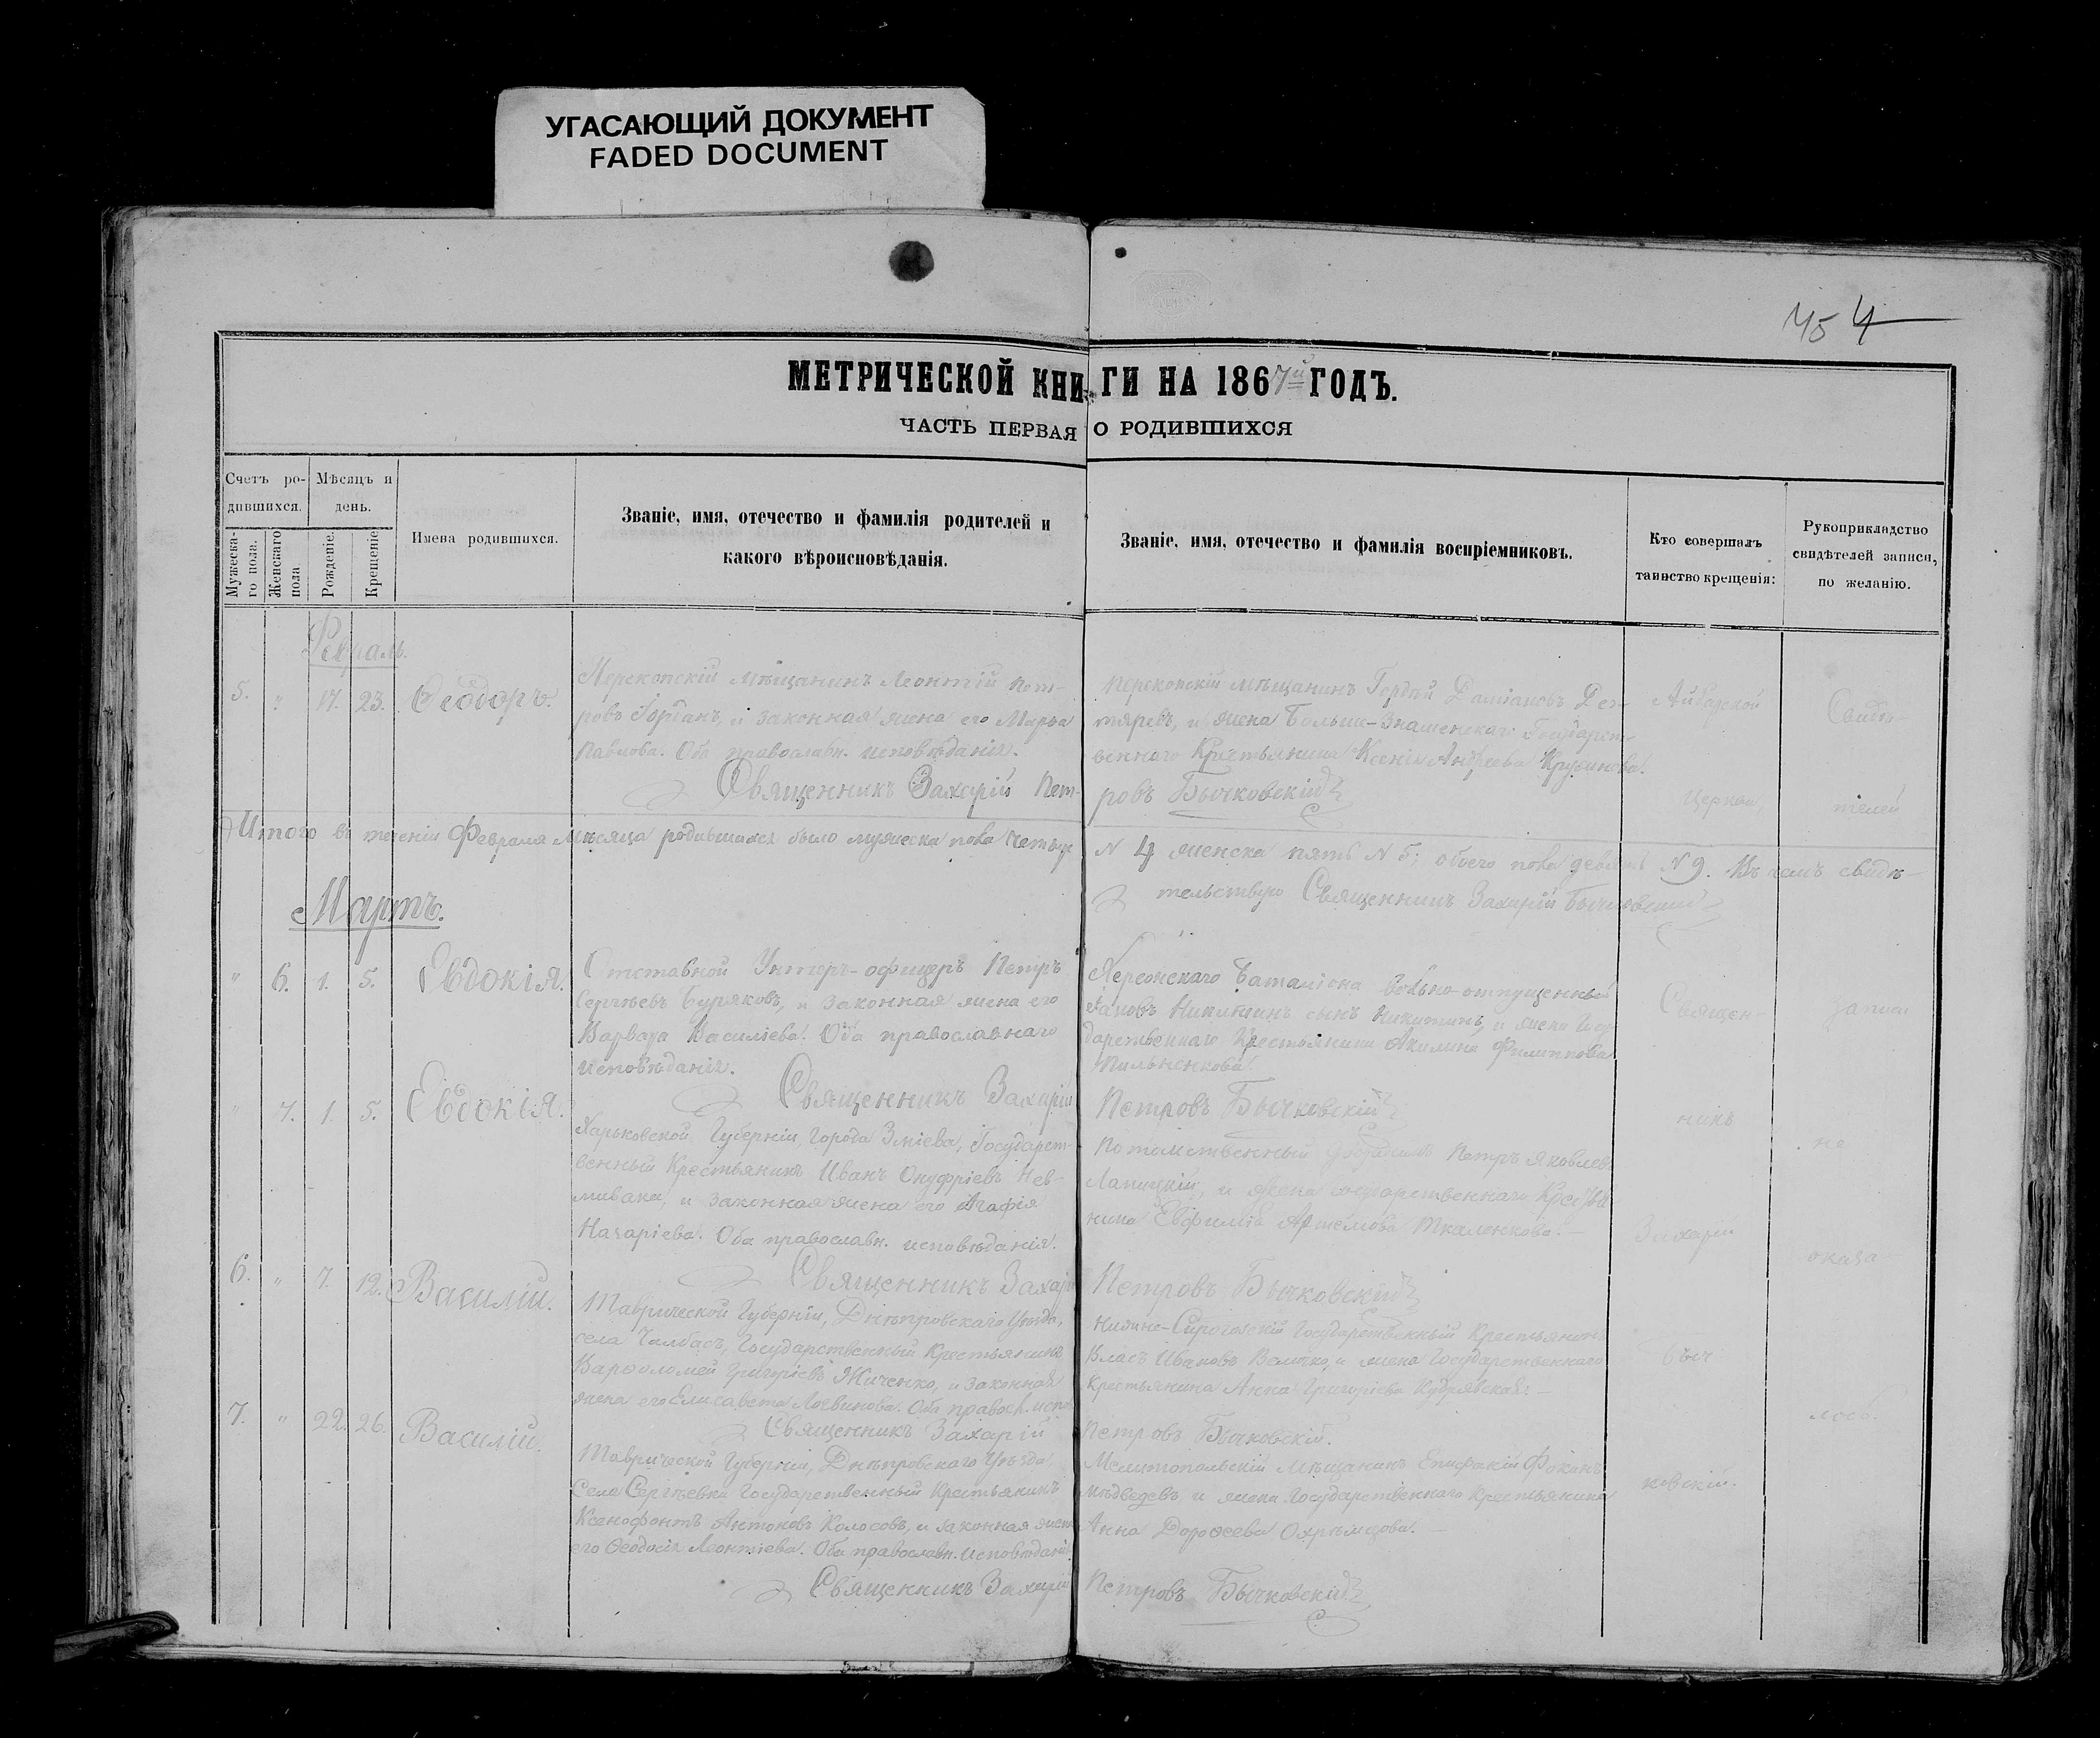 УГАСАЮЩИЙ ДОКУМЕНТ
FADED DOCUMENT
454
МЕТРИЧЕСКОЙ КНИГИ НА 1867й ГОДЪ.
ЧАСТЬ ПЕРВАЯ О РОДИВШИХСЯ
Счетъ ро-
дившихся.
Мужеска-
го пола.
Женскаго
пола
Мѣсяцъ и
день.
Рожденіе.
Крещеніе
Имена родившихся.
Званіе, имя, отечество и фамилія родителей и
какого вѣроисповѣданія.
Званіе, имя, отечество и фамилія воспріемниковъ.
Кто совершалъ
таинство крещенія:
Рукоприкладство
свидѣтелей записи,
по желанію.
Февраль.
5. " 17. 23. Ѳеодоръ.
Перекопскій мѣщанинъ Леонтій Пет-
ровъ Горбанъ, и законная жена его Марѳа
Павлова. Оба православн. исповѣданія.
Священникъ Захарій Пет-
Перекопскій мѣщанинъ Гордѣй Даміановъ Дег-
тяревъ, и жена Больше-Знаменскаго Государст-
веннаго Крестьянина Ксенія Андреева
ровъ Бычковскій
Итого въ теченіи Февраля Мѣсяца родившихся было мужеска пола четыре
N 4 женска пять N 5; обоего пола девять N 9. Въ чемъ свидѣ-
тельствую Священникъ Захарій Бычковскій
Мартъ.
" 6. 1. 5. Евдокія.
Отставной Унтеръ-офицеръ Петръ
Сергѣевъ Буряковъ, и законная жена его
Варвара Василіева. Оба православнаго
исповѣданія.
Священникъ Захарій
Херсонскаго Баталіона вольно-отпущенный
Іаковъ Никитинъ сынъ Никитинъ, и жена Госу-
дарственнаго Крестьянина Акилина Филиппова
Петровъ Бычковскій
" 7. 1. 5. Евдокія.
Харьковской Губерніи, города Зміева, Государст-
венный Крестьянинъ Иванъ Онуфріевъ Нев-
мывака, и законная жена его Агафія
Назаріева. Оба православн. исповѣданія.
Священникъ Захарій
Потомственный Петръ Яковлев.
Лапицкій, и жена государственнаго Крестья-
нина Евфимія Артемова Ткаленкова.
Петровъ Бычковскій
6. " 7. 12. Василій.
Таврической Губерніи, Днѣпровскаго Уѣзда,
села Чалбасъ, Государственный Крестьянинъ
Варѳоломей Григоріевъ Жиченко, и законная
жена его Елисавета Логвинова. Оба правосл. испо.
Священникъ Захарій
Нижне-Сирогозскій Государственный Крестьянинъ
Власъ Ивановъ Величко, и жена Государственнаго
Крестьянина Анна Григоріева Кудрявская
Петровъ Бычковскій.
7. " 22. 26. Василій.
Таврической Губерніи, Днѣпровскаго Уѣзда,
Села Сергѣевки Государственный Крестьянинъ
Ксенофонтъ Антоновъ Колосовъ, и законная жена
его Ѳеодосія Леонтіева. Оба православн. исповѣданія.
Священникъ Захарій
Мелитопольскій Мѣщанинъ Епифаній Фокинъ
Мѣдведевъ, и жена Государственнаго Крестьянина
Анна Дороѳеева
Петровъ Бычковскій
Церкви,
Священ-
никъ
Захарій
Быч
ковскій.
Свидѣ-
телей
записи
не
оказа
лось.